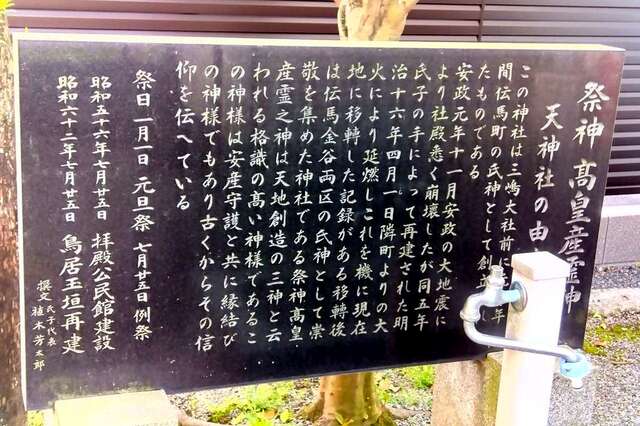 祭神 髙皇産霊神
天神社の由
この神社は三嶋大社前に
間伝馬町の氏神として創立 年
たものである
安政元年十一月安政の大地震に
より社殿悉く崩壊したが同五年
氏子の手によって再建された明
治十六年四月一日隣町よりの大
火により延燃しこれを機に現在
地に移轉した記録がある移轉後
は伝馬金谷両区の氏神として崇
敬を集めた神社である祭神髙皇
産霊之神は天地創造の三神と云
われる格識の髙い神様であるこ
の神様は安産守護と共に縁結び
の神様でもあり古くからその信
仰を伝へている
祭日 一月一日 元旦祭 七月廿五日 例祭
昭和五十六年七月廿五日 拝殿公民館建設
昭和六十二年七月廿五日 鳥居玉垣再建
撰文 氏子代表 植木芳太郎